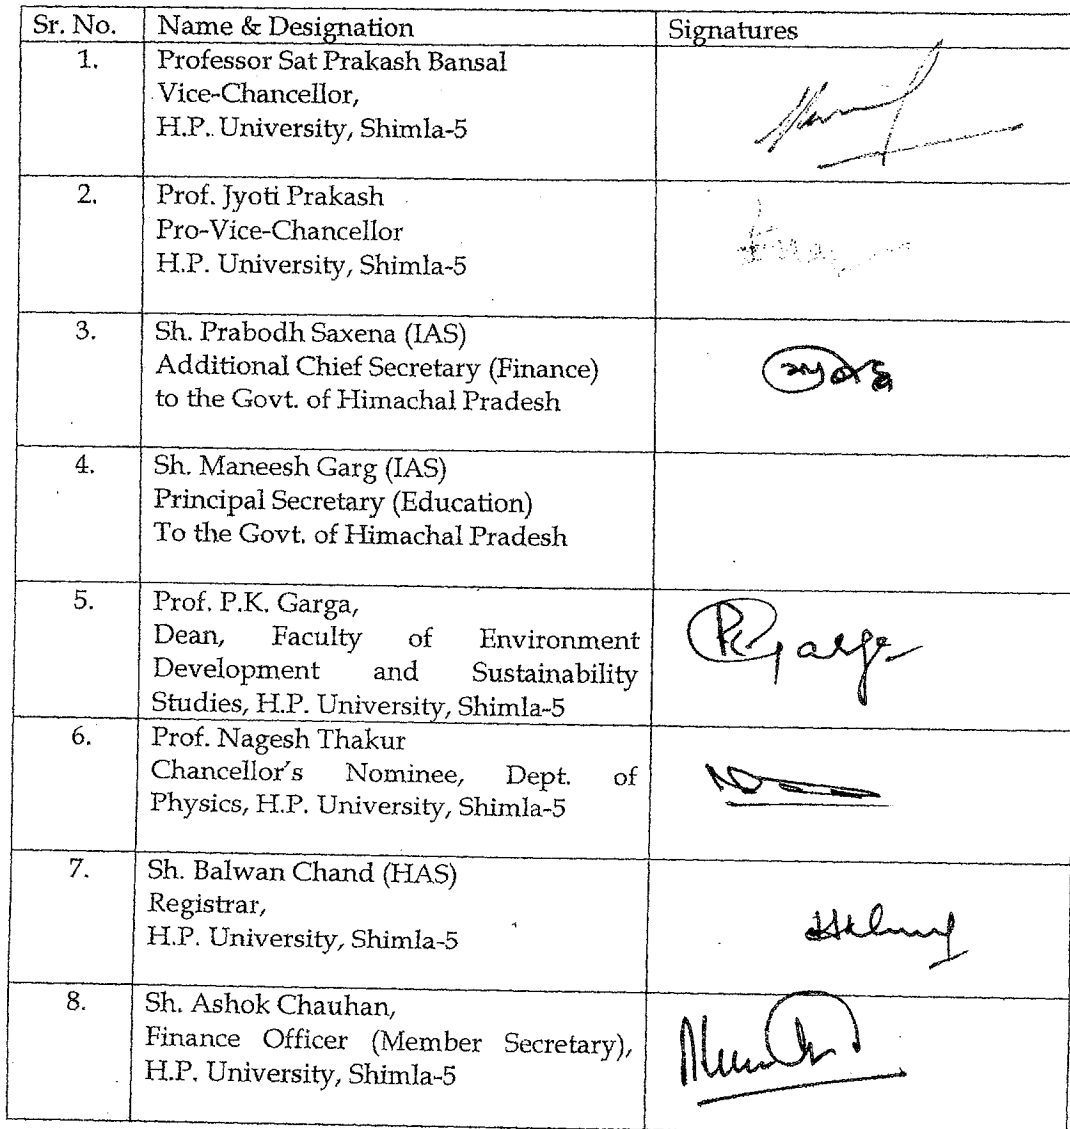 Sr. No. Name & Designation Signatures
1. Professor Sat Prakash Bansal
Vice-Chancellor,
H.P. University, Shimla-5
2. Prof. Jyoti Prakash
Pro-Vice-Chancellor
H.P. University, Shimla-5
3. Sh. Prabodh Saxena (IAS)
Additional Chief Secretary (Finance)
to the Govt. of Himachal Pradesh
4. Sh. Maneesh Garg (IAS)
Principal Secretary (Education)
To the Govt. of Himachal Pradesh
5. Prof. P.K. Garga,
Dean, Faculty of Environment
Development and Sustainability
Studies, H.P. University, Shimla-5
6. Prof. Nagesh Thakur
Chancellor's Nominee, Dept. of
Physics, H.P. University, Shimla-5
7. Sh. Balwan Chand (HAS)
Registrar,
H.P. University, Shimla-5
8. Sh. Ashok Chauhan,
Finance Officer (Member Secretary),
H.P. University, Shimla-5